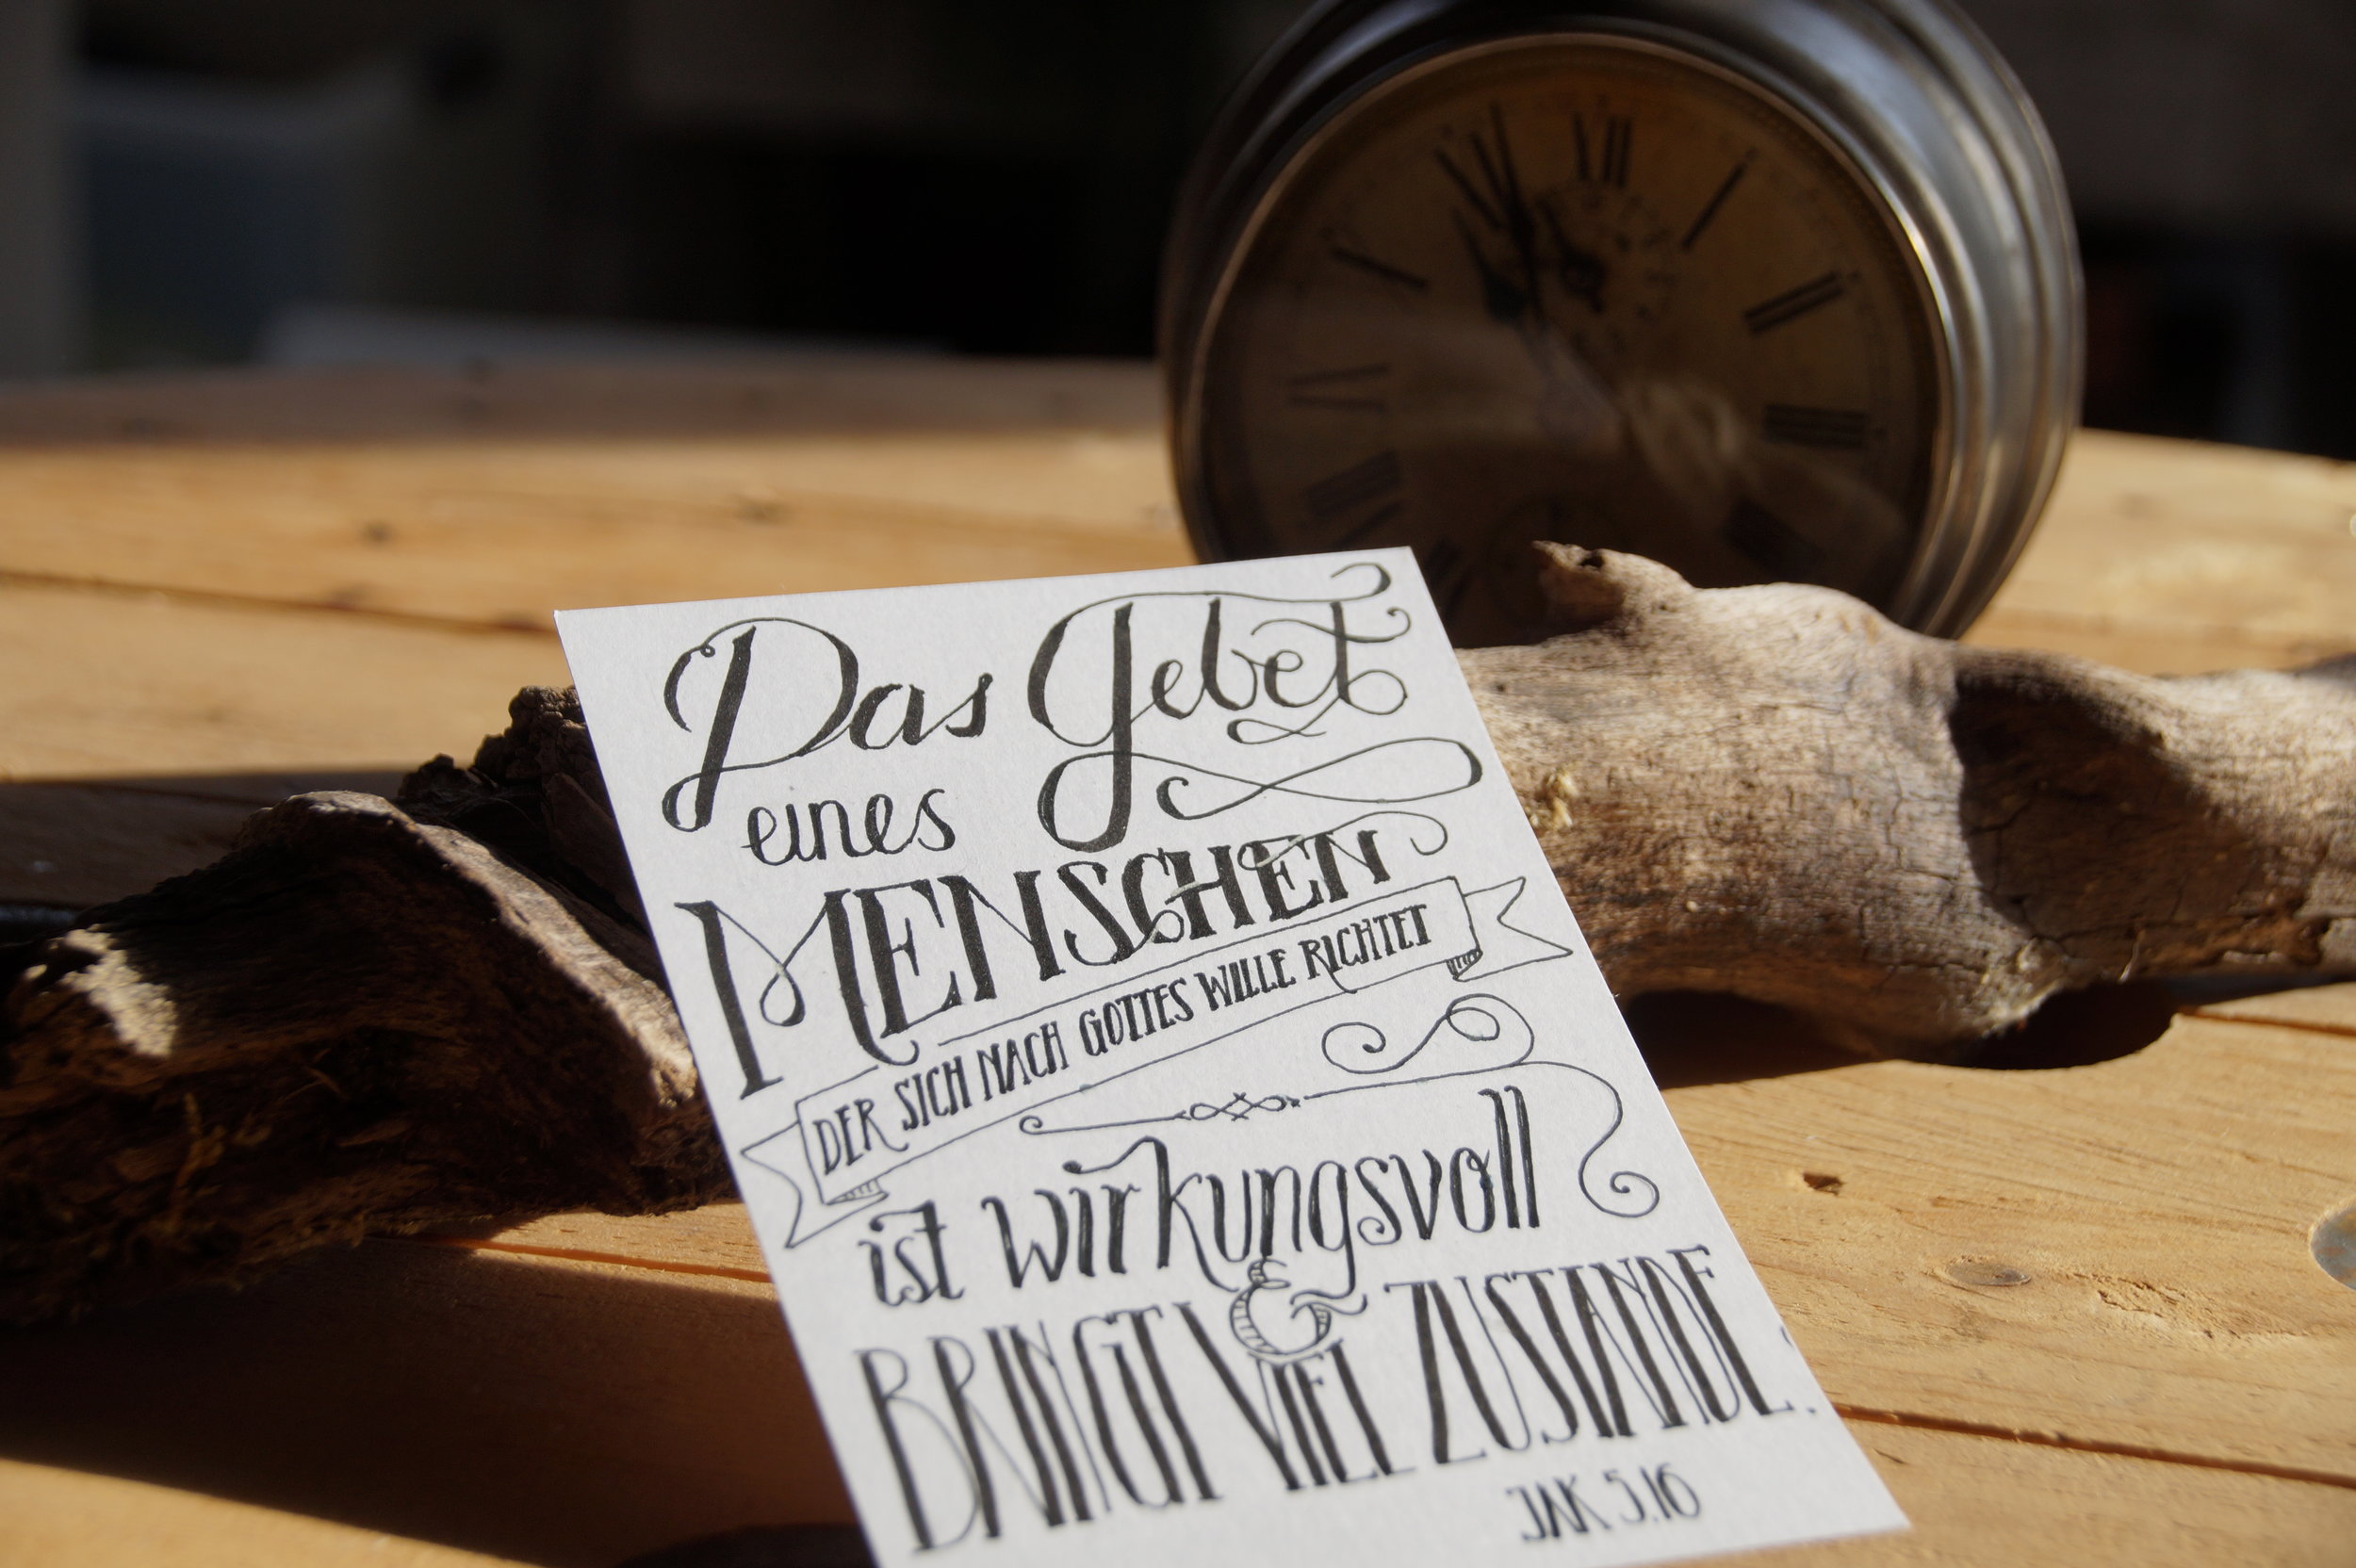 Das Gebet
eines
MENSCHEN
DER SICH NACH GOTTES WILLE RICHTET
ist wirkungsvoll
&
BRINGT VIEL ZUSTANDE.
JAK 5.16
XII
I
II
III
IX
VIII
X
XI